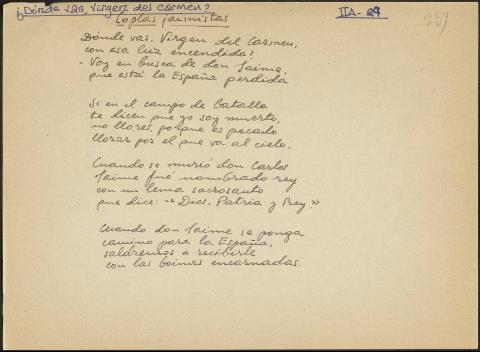 ¿Dónde vas Virgen del Carmen?
IIA-29
239
Coplas jaimistas
Dónde vas, Virgen del Carmen,
con esa luz encendida?
- Voy en busca de don Jaime,
que está la España perdida
Si en el campo de batalla
te dicen que yo soy muerto,
no llores, porque es pecado
llorar por el que va al cielo.
Cuando se murió don Carlos
Jaime fué nombrado rey
con un lema sacrosanto
que dice: "Dios, Patria y Rey"
Cuando don Jaime se ponga
camino para la España,
saldremos a recibirle
con las boinas encarnadas.